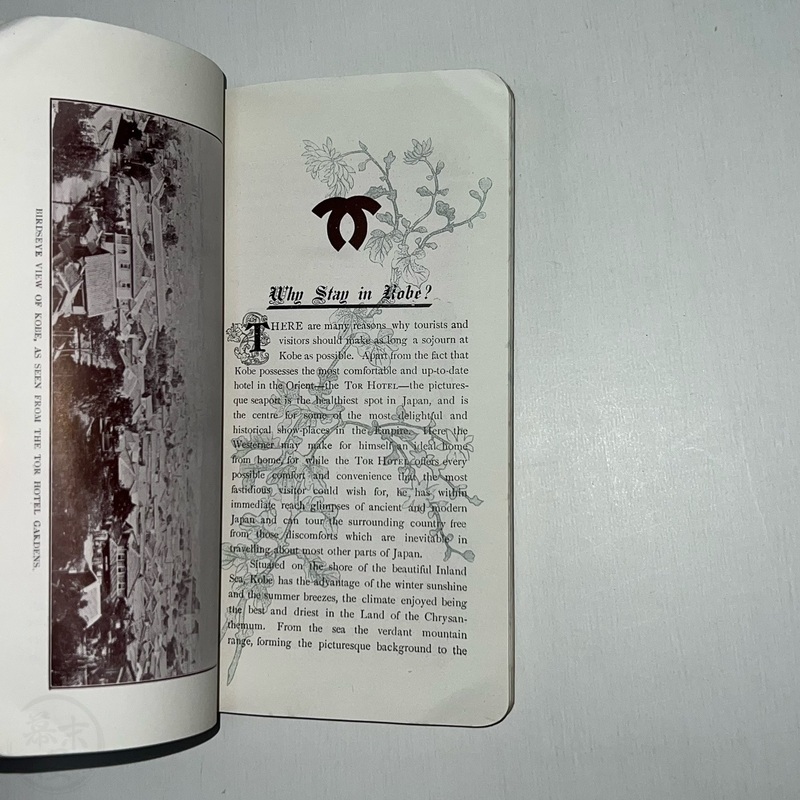 BIRDSEYE VIEW OF KOBE, AS SEEN FROM THE TOR HOTEL GARDENS.
Why Stay in Kobe?
THERE are many reasons why tourists and
visitors should make as long a sojourn at
Kobe as possible. Apart from the fact that
Kobe possesses the most comfortable and up-to-date
hotel in the Orient—the TOR HOTEL—the pictures-
que seaport is the healthiest spot in Japan, and is
the centre for some of the most delightful and
historical show-places in the Empire. Here the
Westerner may make for himself an ideal home
from home, for while the TOR HOTEL offers every
possible comfort and convenience that the most
fastidious visitor could wish for, he has within
immediate reach glimpses of ancient and modern
Japan and can tour the surrounding country free
from those discomforts which are inevitable in
travelling about most other parts of Japan.
Situated on the shore of the beautiful Inland
Sea, Kobe has the advantage of the winter sunshine
and the summer breezes, the climate enjoyed being
the best and driest in the Land of the Chrysan-
themum. From the sea the verdant mountain
range, forming the picturesque background to the
幕末